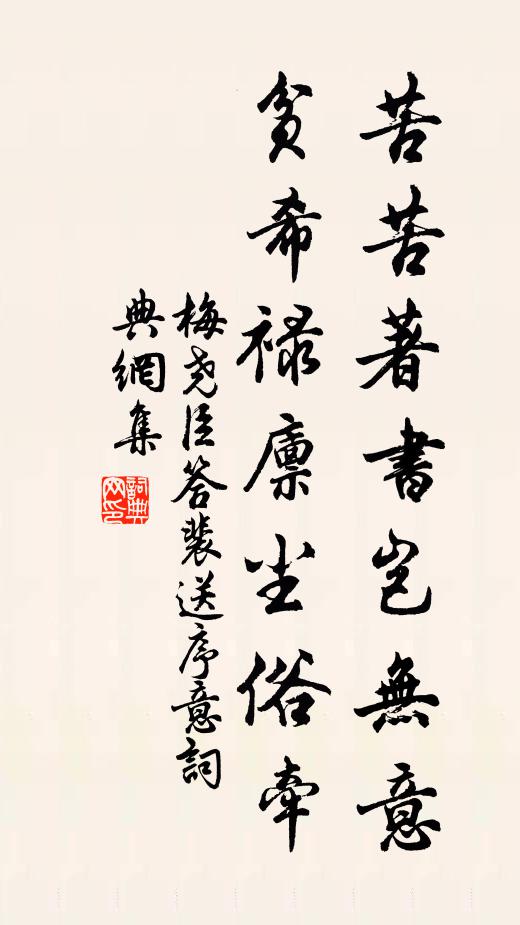 苦苦著書豈無意
貧希祿廩塵俗牽
梅堯臣答裴送序意詞
典網集
詞典網印